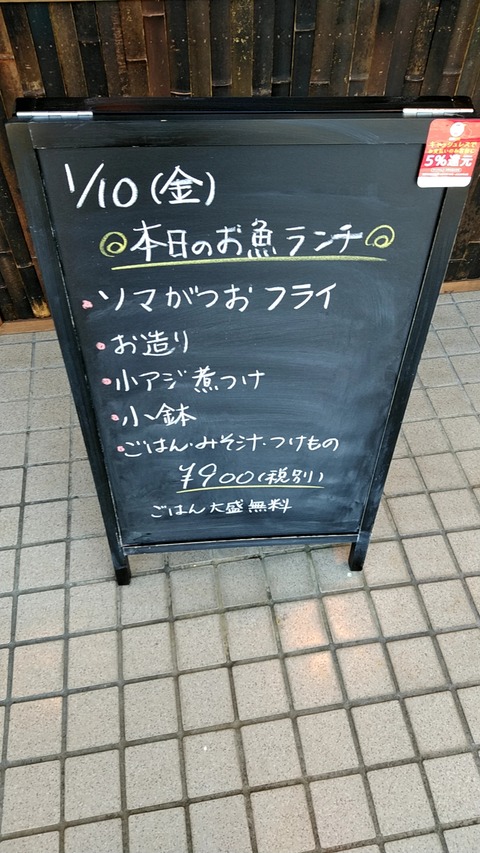 1/10(金)
本日のお魚ランチ
・ソマがつおフライ
・お造り
・小アジ煮つけ
・小鉢
・ごはん・みそ汁・つけもの
¥900(税別)
ごはん大盛無料
キャッシュレスで
5%還元